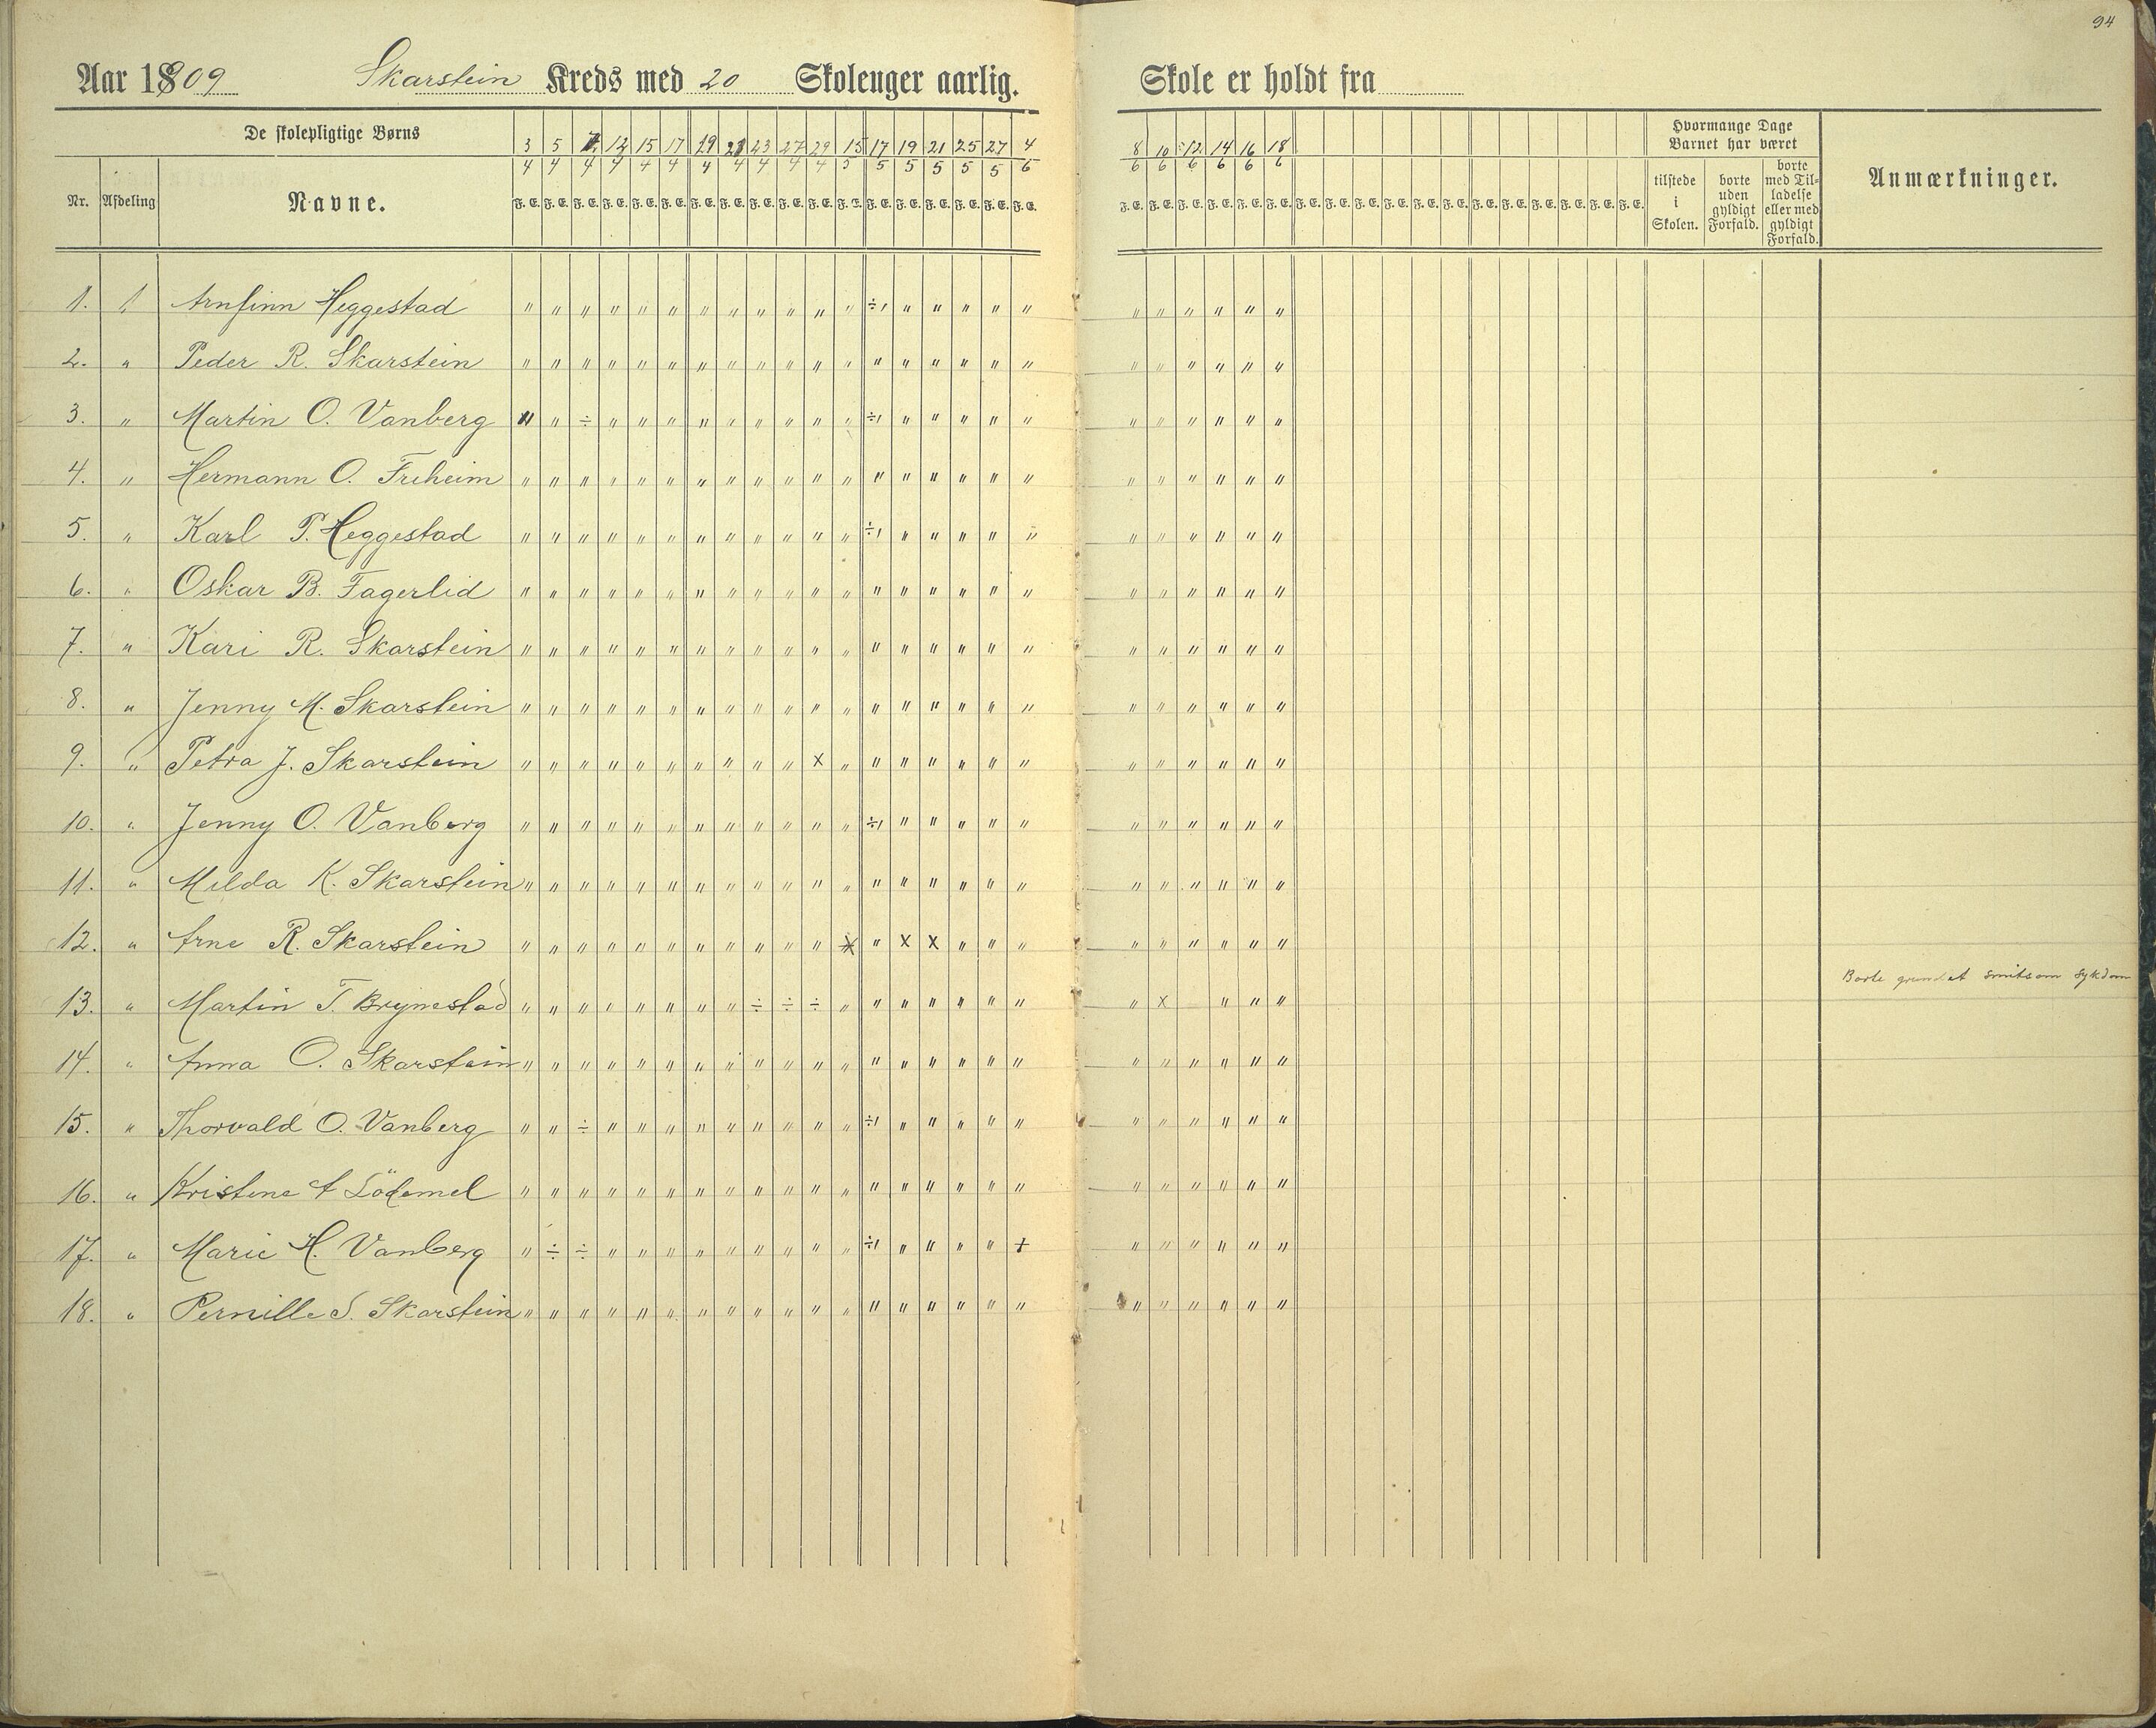 94
Aar 1909 Skarstein Kreds med 20 Skoleuger aarlig. Skole er holdt fra
De skolepligtige Børns
Nr. Afdeling Navne.
3 5 7 12 15 17 19 21 23 27 29 15 17 19 21 25 27 4 8 10 12 14 16 18
4 4 4 4 4 4 4 4 4 4 4 5 5 5 5 5 5 6 6 6 6 6 6 6
F. E. F. E. F. E. F. E. F. E. F. E. F. E. F. E. F. E. F. E. F. E. F. E. F. E. F. E. F. E. F. E. F. E. F. E.
F. E. F. E. F. E. F. E. F. E. F. E. F. E. F. E. F. E. F. E. F. E. F. E. F. E. F. E. F. E. F. E. F. E. F. E.
Hvormange Dage
Barnet har været
tilstede
i
Skolen.
borte
uden
gyldigt
Forfald.
borte
med Til-
ladelse
eller med
gyldigt
Forfald.
Anmærkninger.
1. 1 Arnfinn Heggestad " " " " " " " " " " " " ÷ı " " " " " " " " " " "
2. " Peder R. Skarstein " " " " " " " " " " " " " " " " " " " " " " " "
3. " Martin O. Vanberg " " ÷ " " " " " " " " " ÷ı " " " " " " " " " " "
4. " Hermann O. Friheim " " " " " " " " " " " " " " " " " " " " " " " "
5. " Karl P. Heggestad " " " " " " " " " " " " ÷ı " " " " " " " " " " "
6. " Oskar B. Fagerlid " " " " " " " " " " " " " " " " " " " " " " " "
7. " Kari R. Skarstein " " " " " " " " " " " " " " " " " " " " " " " "
8. " Jenny M. Skarstein " " " " " " " " " " " " " " " " " " " " " " " "
9. " Petra J. Skarstein " " " " " " " " " " x " " " " " " " " " " " " "
10. " Jenny O. Vanberg " " " " " " " " " " " " ÷ı " " " " " " " " " " "
11. " Milda K. Skarstein " " " " " " " " " " " " " " " " " " " " " " " "
12. " Arne R. Skarstein " " " " " " " " " " " x " x x " " " " " " " " "
13. " Martin T. Brynestad " " " " " " " " ÷ ÷ ÷ " " " " " " " " x " " " Borte grundet smitsom sykdom
14. " Anna O. Skarstein " " " " " " " " " " " " " " " " " " " " " " " "
15. " Thorvald O. Vanberg " " ÷ " " " " " " " " " ÷ı " " " " " " " " " " "
16. " Kristine A Lödemel " " " " " " " " " " " " " " " " " " " " " " " "
17. " Marie H. Vanberg " ÷ ÷ " " " " " " " " " ÷ı " " " " + " " " " " "
18. " Pernille S. Skarstein " " " " " " " " " " " " " " " " " " " " " " " "